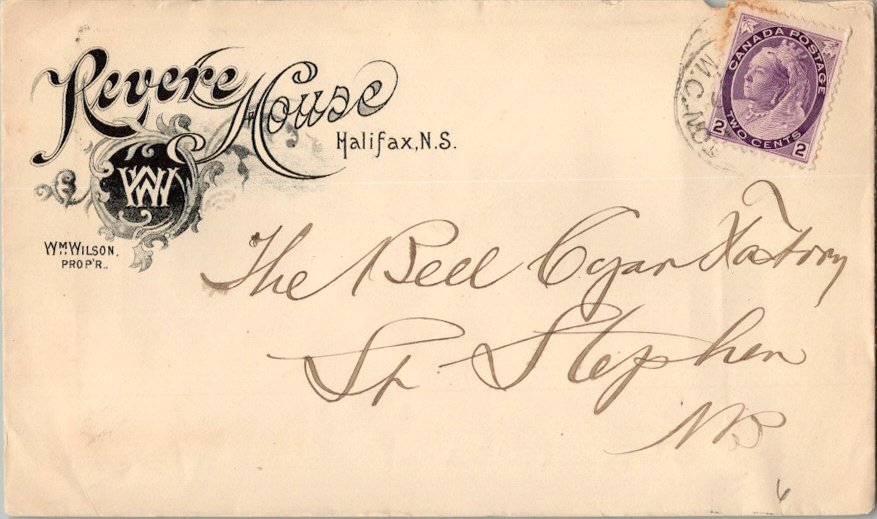 Revere House
Halifax, N.S.
WM. WILSON,
PROP'R..
CANADA POSTAGE
2 TWO CENTS 2
M.C.
The Bell Cigar Factory
St. Stephen
NB